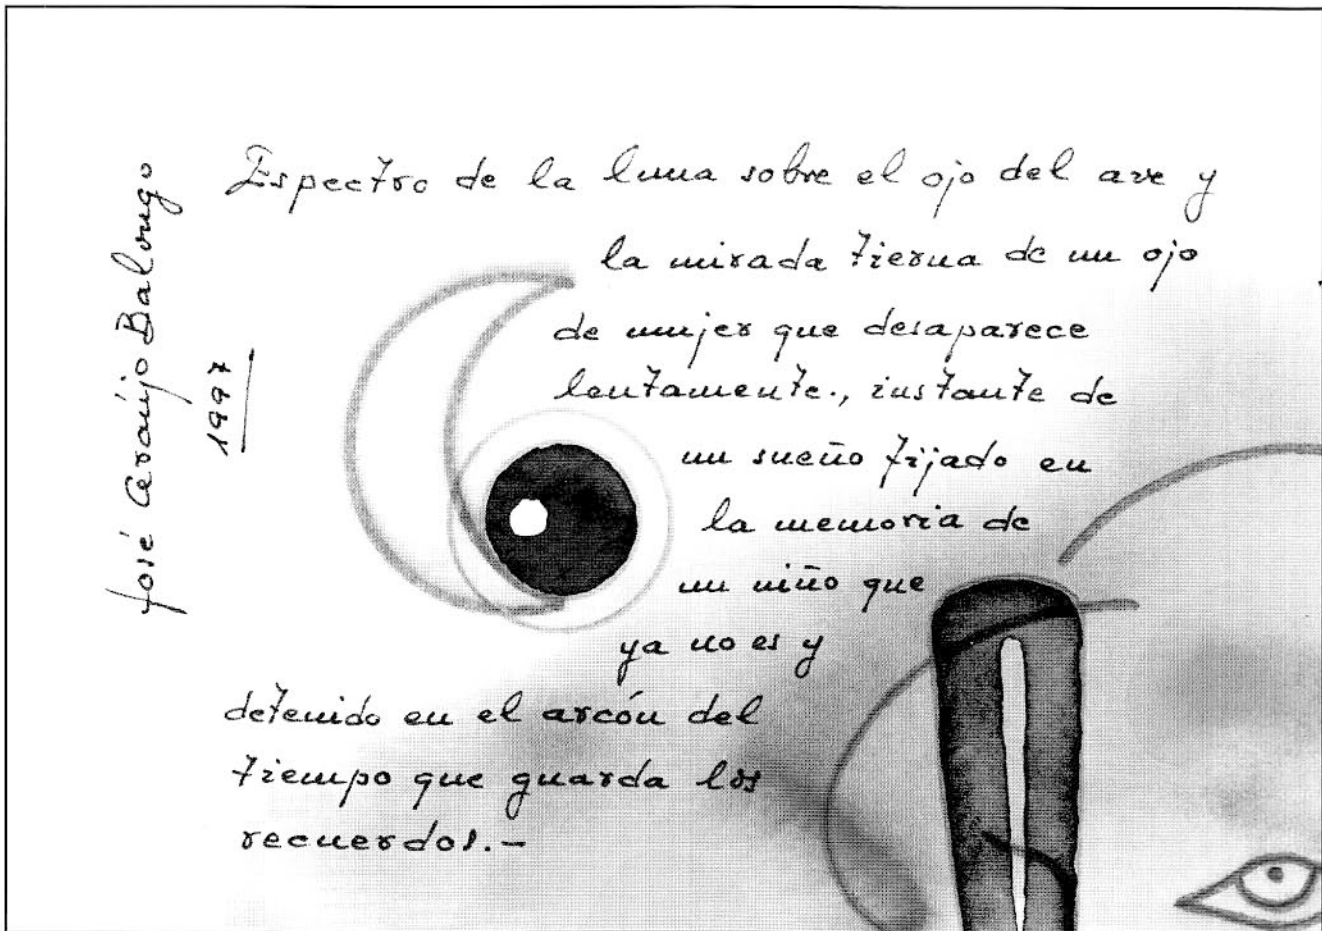 José Araújo Balongo
1997
Espectro de la luna sobre el ojo del ave y
la mirada tierna de un ojo
de mujer que desaparece
lentamente., instante de
un sueño fijado en
la memoria de
un niño que
ya no es y
detenido en el arcón del
tiempo que guarda los
recuerdos.-